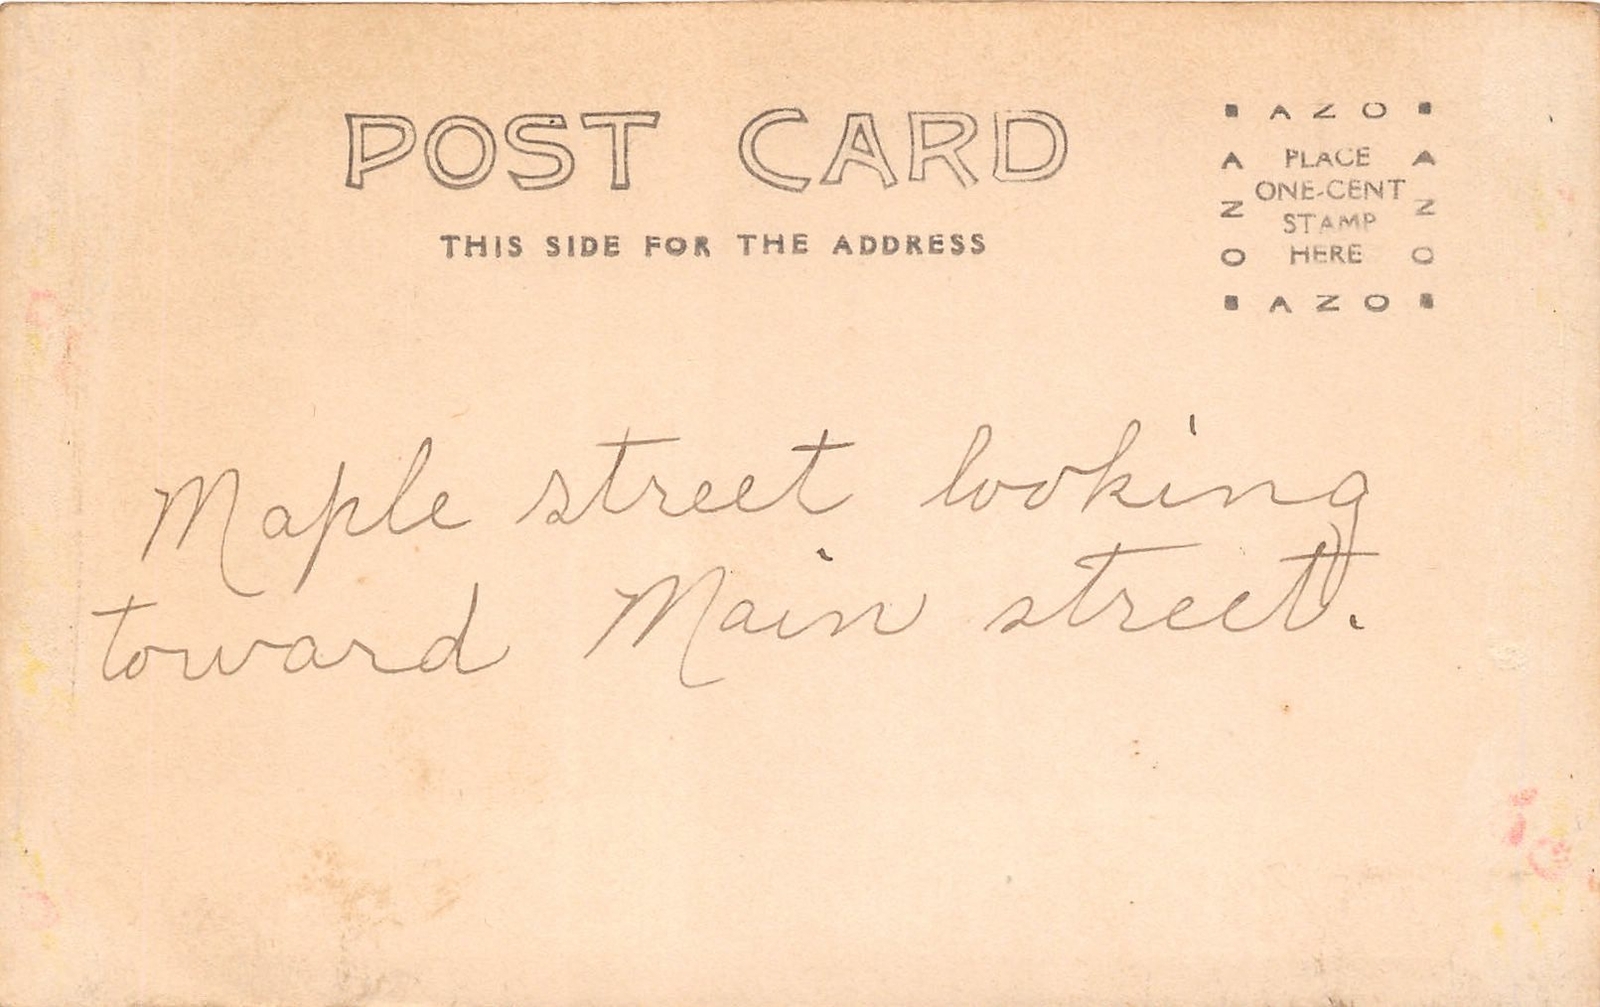 POST CARD
THIS SIDE FOR THE ADDRESS
▪ A Z O ▪
A PLACE A
ONE-CENT
Z STAMP Z
O HERE O
▪ A Z O ▪
Maple street looking
toward Main street.